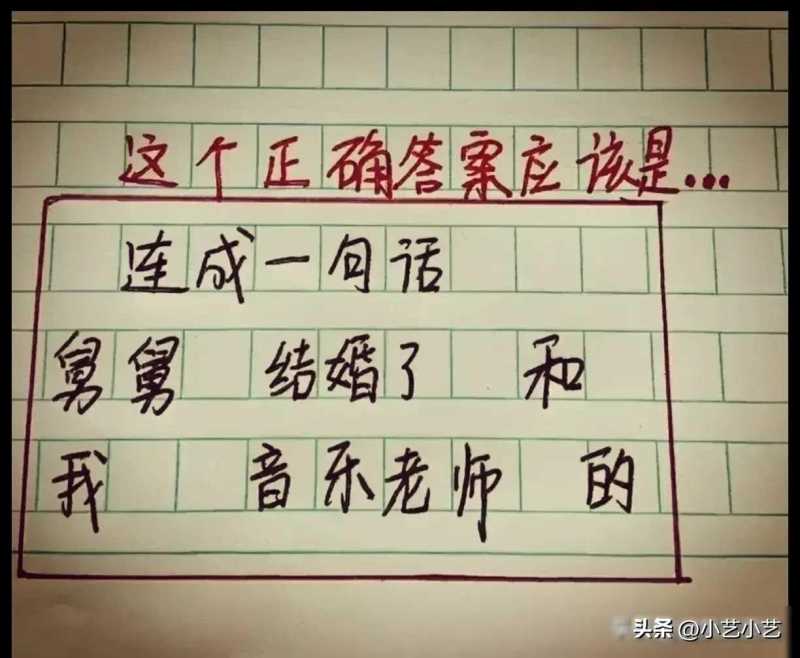 这个正确答案应该是...
连成一句话
舅舅 结婚了 和
我 音乐老师 的
头条 @小艺小艺